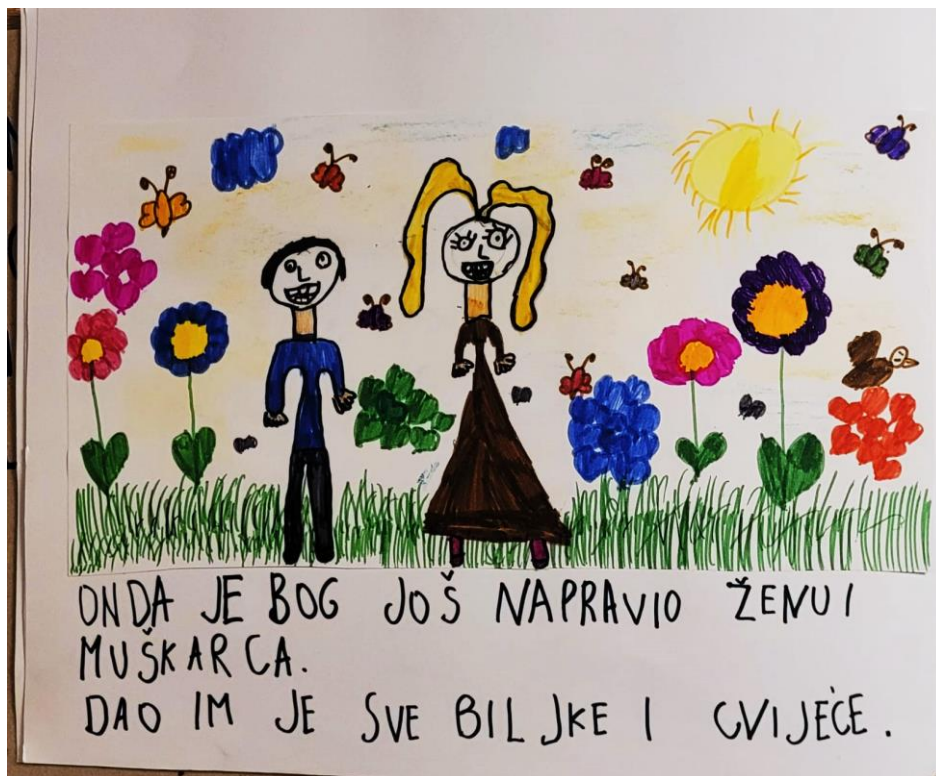 ONDA JE BOG JOŠ NAPRAVIO ŽENU I
MUŠKARCA.
DAO IM JE SVE BILJKE I CVIJEĆE.